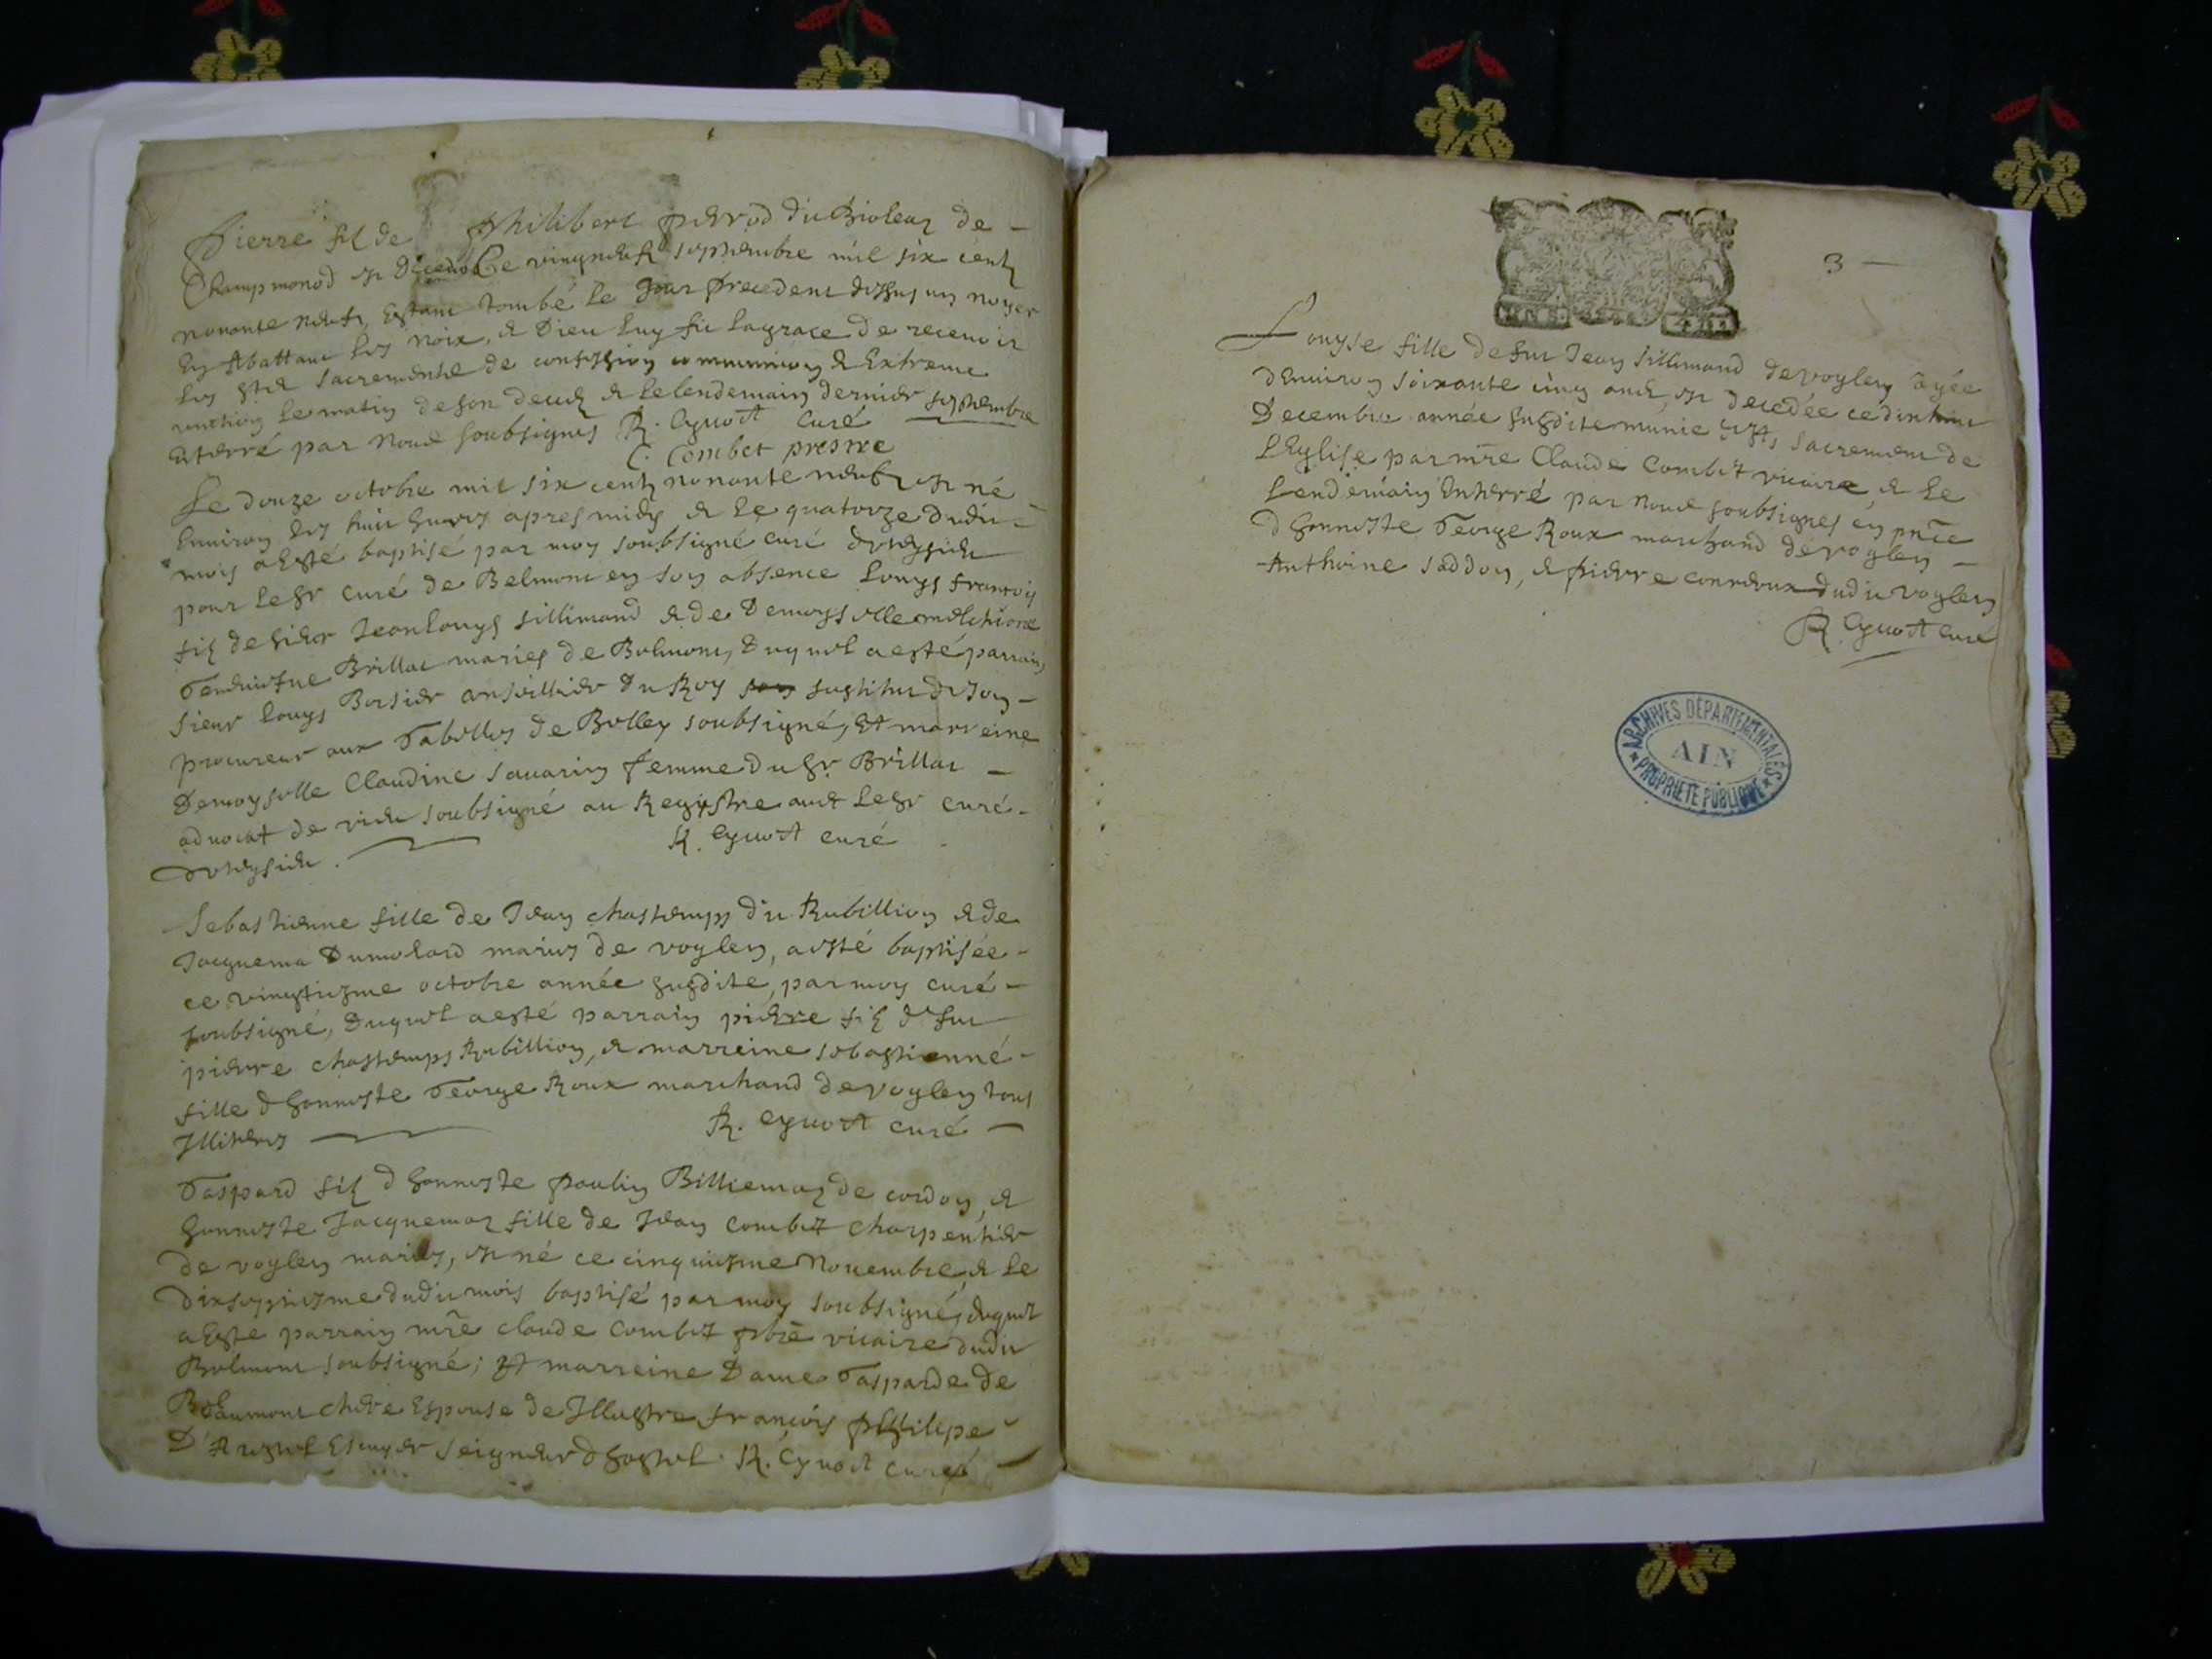 Pierre fil de Philibert perrod du Bioleaz de -
Champmonod est décédé le vingneufz septembre mil six centz
nonante neufz Estant tombé le jour precedent dessus un noyer
En Abattant les noix, & Dieu luy fit la grace de recevoir
les stz sacrements de confession communion & Extreme
unction le matin de son decez & le lendemain dernier septembre
Enterré par nous soubsignés R. Cyvoct Curé
C. Combet prestre
Le douze octobre mil six centz nonante neufz est né
Environ les huit heures apres midy & le quatorze dudit -
mois a Esté baptisé par moy soubsigné curé
pour le sr curé de Belmont en son absence Louys françois
fil de sieur Jean louys sillimand & de Demoyselle melchiore
Brillat mariés de Belmont, Duquel a esté parrain
sieur Louys Borsier conseillier Du Roy substitut de son -
procureur aux de Belley soubsigné, Et marreine
Demoyselle Claudine savarin femme du sr Brillat -
advocat de soubsigné au Registre avec le sr curé -
R. Cyvoct curé
Sebastienne fille de Jean chastemps du Rubillion & de
Jacquema Dumolard mariés de voglen, a esté baptisée -
ce vingtiesme octobre année susdite, par moy curé -
soubsigné, Duquel a esté parrain pierre fil de feu
pierre chastemps Rubillion, & marreine sebastienne -
fille d honneste George Roux marchand de voglen tous
Illiterés R. Cyvoct curé -
Gaspard fil d honneste Poulin Billiemaz de cordon, &
honneste Jacquemaz fille de Jean combet charpentier
de voglen mariés, est né ce cinquiesme Novembre, & le
dixseptiesme dudit mois baptisé par moy soubsigné, duquel
a Esté parrain mre claude Combet pbre vicaire dudit
Belmont soubsigné; Et marreine Dame Gasparde de
Beaumont chere Espouse de Illustre françois philipe
D' Escuyer seigneur d hostel. R. Cyvoct curé -
3 -
Louyse fille de feu Jean sillimand de voglen agée
d Environ soixante cinq ans, est decedée ce dixhuit
Decembre année susdite munie des sts sacrement de
L Eglise par mre Claude Combet vicaire & le
Lendemain Enterré par nous soubsignés en pnce
d honneste George Roux marchand de voglen -
Anthoine saddon, & pierre dudit voglen
R. Cyvoct curé
ARCHIVES DÉPARTEMENTALES
AIN
PROPRIÉTÉ PUBLIQUE